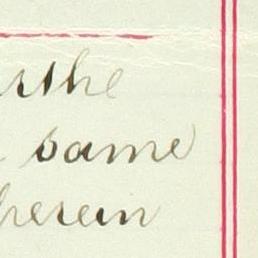 the
same
herein